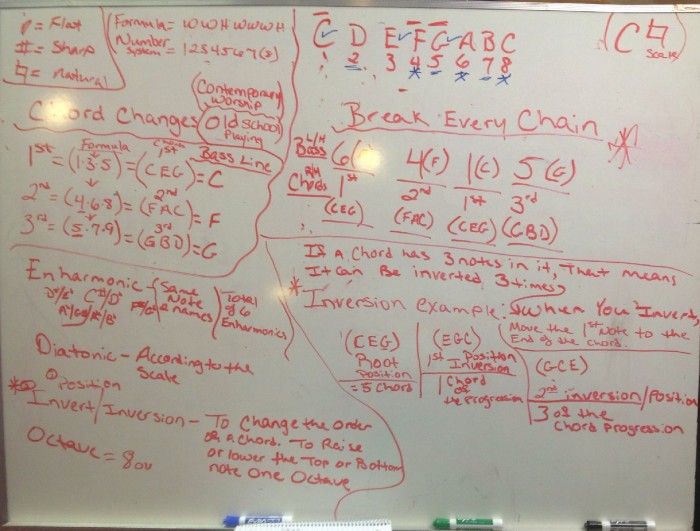 ♭ = Flat
# = Sharp
♮ = Natural
Formula = WWHWWWH
Number System = 1 2 3 4 5 6 7 (8)
C D E F G A B C
1 2 3 4 5 6 7 8
C ♮
Scale
Contemporary
Worship
Old School
Playing
Chord Changes
Formula
Bass Line
1st = (1·3·5) = (CEG) = C
2nd = (4·6·8) = (FAC) = F
2nd
3rd = (5·7·9) = (GBD) = G
3rd
Break Every Chain
L/H
Bass 6 4(F) 1(C) 5(G)
R/H
Chords 1st 2nd 1st 3rd
(CEG) (FAC) (CEG) (GBD)
If a chord has 3 notes in it, That means
It can Be inverted 3 times
Enharmonic - Same
Note
2 names
Total
of 6
Enharmonics
Diatonic - According to the
Scale
Position
Invert/Inversion - To Change the order
of a chord. To Raise
or lower the Top or Bottom
note One Octave
Octave = 8
Inversion example: When You Invert,
Move the 1st Note to the
End of the chord.
(CEG)
Root
Position
= 5 Chord
(EGC)
1st Position
Inversion
1 Chord
of
the progression
(GCE)
2nd inversion/Position
3 of the
Chord Progression